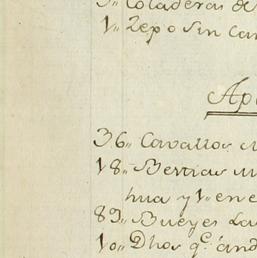 3,, Coladeras de
1,, Zepo sin
Ap
36,, Cavallos
18,, Bestias
hua y 1,, en e
89,, Bueyes
10,, Dhos q.e